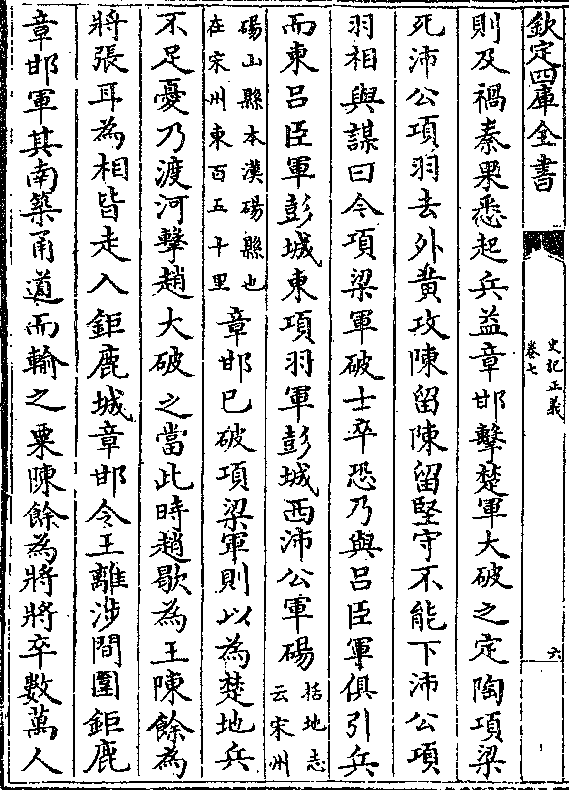 欽定四庫全書
史記正義
卷七
六
則及禍秦果悉起兵益章邯擊楚軍大破之定陶項梁
死沛公項羽去外黄攻陳留陳留堅守不能下沛公項
羽相與謀曰今項梁軍破士卒恐乃與吕臣軍俱引兵
而東吕臣軍彭城東項羽軍彭城西沛公軍碭
括地志
云宋州
碭山縣本漢碭縣也
在宋州東百五十里
章邯已破項梁軍則以為楚地兵
不足憂乃渡河擊趙大破之當此時趙歇為王陳餘為
將張耳為相皆走入鉅鹿城章邯令王離涉間圍鉅鹿
章邯軍其南築甬道而輸之粟陳餘為將將卒數萬人